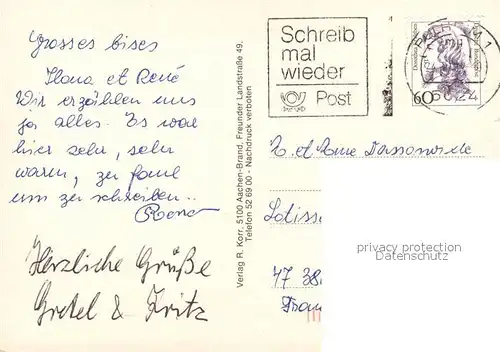 Grosses bises
Ilona et René
Wir erzählen uns
ja alles. Es war
hier sehr, sehr
warm, zu faul
um zu schreiben..
Rene
Herzliche Grüße
Gretel & Fritz
Verlag R. Korr, 5100 Aachen-Brand, Freunder Landstraße 49,
Telefon 52 69 00 - Nachdruck verboten
Schreib
mal
wieder
Post
60
et Mme
Lotiss
47 38
Fran
privacy protection